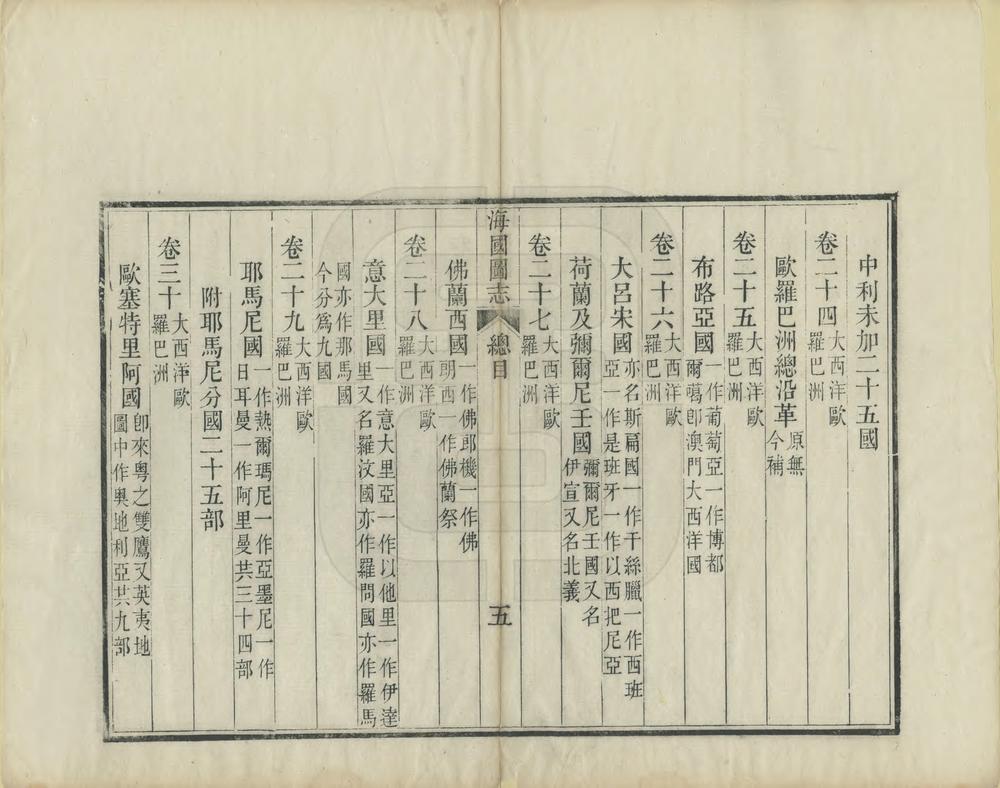 中利未加二十五國
卷二十四大西洋歐羅巴洲
歐羅巴洲總沿革原無今補
卷二十五大西洋歐羅巴洲
布路亞國一作葡萄亞一作博都爾噶卽澳門大西洋國
卷二十六大西洋歐羅巴洲
大呂宋國亦名斯扁國一作干絲臘一作西班亞一作是班牙一作以西把尼亞
荷蘭及彌爾尼壬國彌爾尼壬國又名伊宣又名北義
卷二十七大西洋歐羅巴洲
海國圖志 總目 五
佛蘭西國一作佛郎機一作佛朗西一作佛蘭祭
卷二十八大西洋歐羅巴洲
意大里國一作意大里亞一作以他里一作伊達里又名羅汶國亦作羅問國亦作羅馬
國亦作那馬國今分爲九國
卷二十九大西洋歐羅巴洲
耶馬尼國一作熱爾瑪尼一作亞墨尼一作日耳曼一作阿里曼共三十四部
附耶馬尼分國二十五部
卷三十大西洋歐羅巴洲
歐塞特里阿國卽來粵之雙鷹又英夷地圖中作奧地利亞共九部